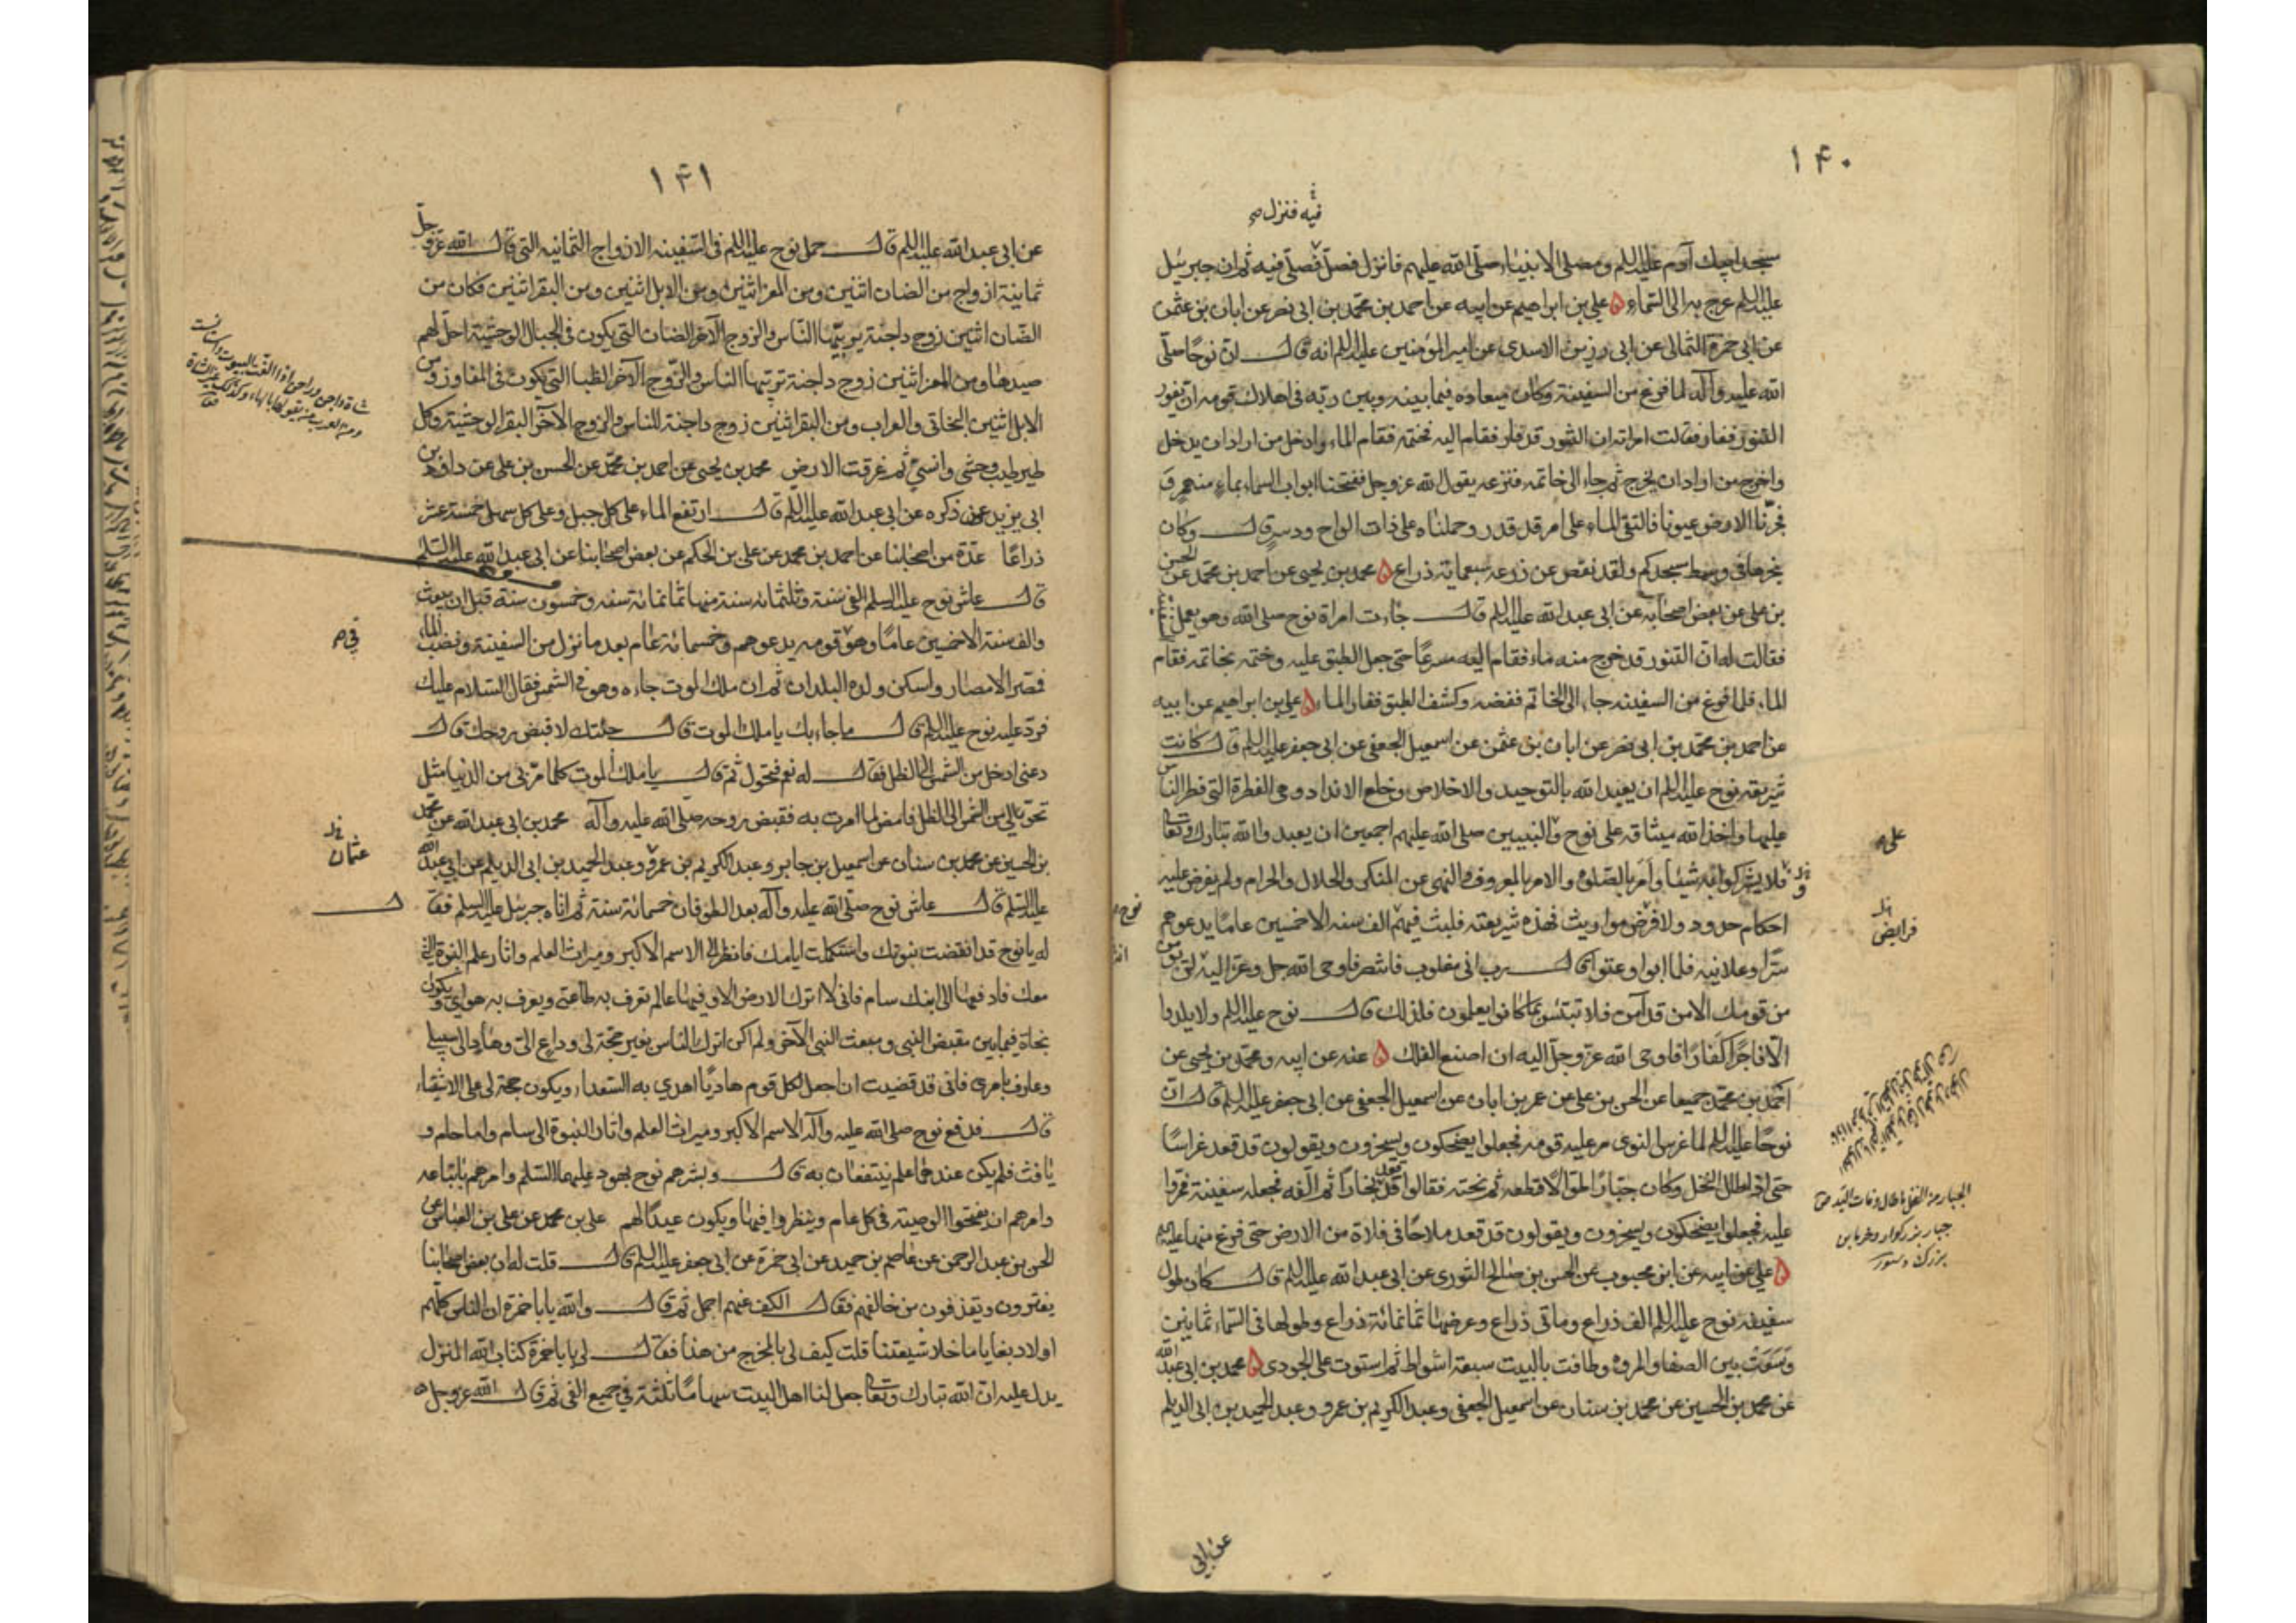 ١۴٠
فيه فنزل
مسجد ابيك آدم عليه السلم ومصلى الانبياء صلى الله عليهم فانزل فصل فيه فنزل فصلى فيه ثم ان جبرئيل
عليه السلم عرج به الى السماء ۵ علي بن ابراهيم عن ابيه عن احمد بن محمد بن ابى نصر عن ابان بن عثمن
عن ابى حمزة الثمالى عن ابى رزين الاسدى عن امير المؤمنين عليه السلم انه قال ان نوحًا صلى
الله عليه وآله لما فرغ من السفينة وكان ميعاده فيما بينه وبين ربه فى اهلاك قومه ان يفور
التنور ففار فقالت امراته ان التنور قد فار فقام اليه فختمه فقام الماء وادخل من اراد ان يدخل
واخرج من اراد ان يخرج ثم جاء الى خاتمه فنزعه يقول الله عز وجل ففتحنا ابواب السماء بماء منهمر و
فجرنا الارض عيونا فالتقى الماء على امر قد قدر وحملناه على ذات الواح ودسر قال وكان
نجرها فى وسط مسجدكم ولقد نقص عن ذرعه سبعمائة ذراع ۵ محمد بن يحيى عن احمد بن محمد عن الحسن
بن على عن بعض اصحابه عن ابى عبد الله عليه السلم قال جاءت امراة نوح صلى الله وهو يعمل السفينة
فقالت له ان التنور قد خرج منه ماء فقام اليه مسرعًا حتى جعل الطبق عليه وختمه بخاتمه فقام
الماء فلما فرغ من السفينه جاء الى الخاتم ففضه وكشف الطبق ففار الماء ۵ علي بن ابراهيم عن ابيه
عن احمد بن محمد بن ابى نصر عن ابان بن عثمن عن اسمعيل الجعفى عن ابى جعفر عليه السلم قال كانت
شريعة نوح عليه السلم ان يعبد الله بالتوحيد والاخلاص وخلع الانداد وهى الفطرة التى فطر الناس
عليها واخذ الله ميثاقه على نوح والنبيين صلى الله عليهم اجمعين ان يعبدوا الله تبارك وتعالى
على
فلا يشركوا به شيئا وامر بالصلوة والامر بالمعروف والنهى عن المنكر والحلال والحرام ولم يفرض عليه
احكام حدود ولا فرض مواريث فهذه شريعته فلبث فيهم الف سنه الا خمسين عامًا يدعوهم
فرايض
سرًا وعلانيه فلما ابوا وعتوا قال رب انى مغلوب فانتصر فاوحى الله جل وعز اليه لن يؤمن
من قومك الا من قد آمن فلا تبتئس بما كانوا يعملون فلذلك قال نوح عليه السلم ولا يلدوا
الا فاجرًا كفارًا فاوحى الله عز وجل اليه ان اصنع الفلك ۵ عنه عن ابيه ومحمد بن يحيى عن
احمد بن محمد جميعا عن الحسن بن على عن عمر بن ابان عن اسمعيل الجعفى عن ابى جعفر عليه السلم قال ان
نوحًا عليه السلم لما غرس النوى مر عليه قومه فجعلوا يضحكون ويسخرون ويقولون قد قعد غراسًا
حتى اذا طال النخل وكان جبارًا طوالًا قطعه ثم نحته فقالوا قد قعد نجارًا ثم الفه فجعله سفينة فمروا
عليه فجعلوا يضحكون ويسخرون ويقولون قد قعد ملاحًا فى فلاة من الارض حتى فرغ منها
الجبار من النخل ما طال وفات اليد
۵ على عن ابيه عن ابن محبوب عن الحسن بن صالح الثورى عن ابى عبد الله عليه السلم قال كان طول
سفينة نوح عليه السلم الف ذراع ومأتى ذراع وعرضها ثمانمائة ذراع وطولها فى السماء ثمانين
وسعت بين الصفا والمروه وطافت بالبيت سبعة اشواط ثم استوت على الجودى ۵ محمد بن ابى عبد الله
عن محمد بن الحسين عن محمد بن سنان عن اسمعيل الجعفى وعبد الكريم بن عمرو وعبد الحميد بن ابى الديلم
عن ابى
١۴١
عن ابى عبد الله عليه السلم قال حمل نوح عليه السلم فى السفينه الازواج الثمانيه التى قال الله عز وجل
ثمانية ازواج من الضان اثنين ومن المعز اثنين ومن الابل اثنين ومن البقر اثنين فكان من
الضان اثنين زوج داجنة يربيها الناس والزوج الآخر الضان التى يكون فى الجبال الوحشية احل لهم
صيدها ومن المعز اثنين زوج داجنة تربيها الناس والزوج الآخر الظبا التى يكون فى المفاوز ومن
الابل اثنين البخاتى والعراب ومن البقر اثنين زوج داجنة للناس والزوج الآخر البقر الوحشية وكل
طير طيب وحشى وانسى ثم غرقت الارض محمد بن يحيى عن احمد بن محمد عن الحسن بن على عن داود بن
ابى يزيد عمن ذكره عن ابى عبد الله عليه السلم قال ارتفع الماء على كل جبل وعلى كل سهل خمسة عشر
ذراعًا عدة من اصحابنا عن احمد بن محمد عن على بن الحكم عن بعض اصحابنا عن ابى عبد الله عليه السلم
قال عاش نوح عليه السلم الفى سنة وثلثمائة سنة منها ثمانمائة سنه وخمسون سنة قبل ان يبعث
والف سنة الا خمسين عامًا وهو قومه يدعوهم وخمسمائة عام بعد ما نزل من السفينة ونضب الماء
فى
فمصر الامصار واسكن ولده البلدان ثم ان ملك الموت جاءه وهو فى الشمس فقال السلام عليك
فرد عليه نوح عليه السلم قال ما جاء بك يا ملك الموت قال جئتك لاقبض روحك قال
دعنى ادخل من الشمس الى الظل فقال له نعم فتحول ثم قال يا ملك الموت كلما مر بى من الدنيا مثل
تحويلى من الشمس الى الظل فامض لما امرت به فقبض روحه صلى الله عليه وآله محمد بن ابى عبد الله عن محمد
بن الحسين عن محمد بن سنان عن اسمعيل بن جابر وعبد الكريم بن عمرو وعبد الحميد بن ابى الديلم عن ابى عبد الله
عثمان
عليه السلم قال عاش نوح صلى الله عليه وآله بعد الطوفان خمسمائة سنة ثم اتاه جبرئيل عليه السلم فقال
له يا نوح قد انقضت نبوتك واستكملت ايامك فانظر الى الاسم الاكبر وميراث العلم واثار علم النبوة التى
معك فادفعها الى ابنك سام فانى لا اترك الارض الا وفيها عالم تعرف به طاعتى ويعرف به هواى ويكون
نجاة فيما بين مقبض النبى ومبعث النبى الآخر ولم اكن اترك الناس بغير حجة لى وداع الى وهاد الى سبيلى
وعارف بامرى فانى قد قضيت ان اجعل لكل قوم هاديًا اهدى به السعداء ويكون حجة لى على الاشقياء
قال فدفع نوح صلى الله عليه وآله الاسم الاكبر وميراث العلم واثار النبوة الى سام واما حام و
يافث فلم يكن عندهما علم ينتفعان به قال وبشرهم نوح بهود عليهما السلم وامرهم باتباعه
وامرهم ان يفتحوا الوصية فى كل عام وينظروا فيها ويكون عيدًا لهم على بن محمد عن على بن العباس عن
الحسن بن عبد الرحمن عن عاصم بن حميد عن ابى حمزة عن ابى جعفر عليه السلم قال قلت له ان بعض اصحابنا
يفترون ويقذفون من خالفهم فقال الكف عنهم اجمل ثم قال والله يا با حمزة ان الناس كلهم
اولاد بغايا ما خلا شيعتنا قلت كيف لى بالمخرج من هذا فقال لى يا با حمزة كتاب الله المنزل
يدل عليه ان الله تبارك وتعالى جعل لنا اهل البيت سهامًا ثلثة فى جميع الفى ثم قال الله عز وجل